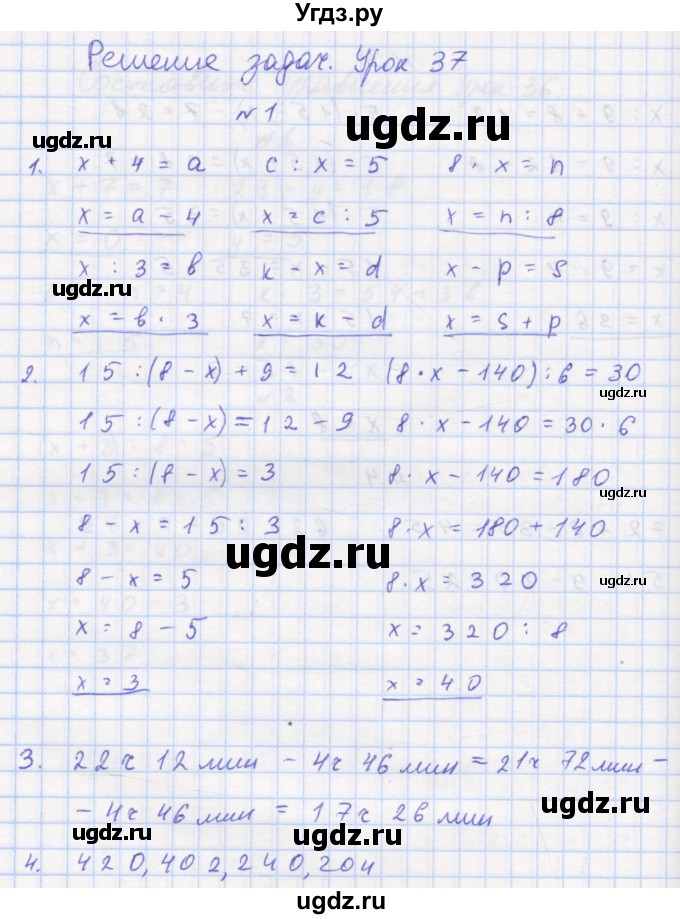 Угдз.ру
Решение задач. Урок 37
№1
ugdz.ru
ugdz.ru
1. x + 4 = a   c : x = 5   8 · x = n
x = a - 4   x = c : 5   x = n : 8
x : 3 = в   k - x = d   x - p = s
ugdz.ru
ugdz.ru
x = в · 3   x = k - d   x = s + p
2. 15 : (8 - x) + 9 = 12   (8 · x - 140) : 6 = 30
ugdz.ru
15 : (8 - x) = 12 - 9   8 · x - 140 = 30 · 6
15 : (8 - x) = 3   8 · x - 140 = 180
ugdz.ru
8 - x = 15 : 3   8 · x = 180 + 140
ugdz.ru
8 - x = 5   8 · x = 320
ugdz.ru
x = 8 - 5   x = 320 : 8
ugdz.ru
x = 3   x = 40
ugdz.ru
3. 22ч 12 мин - 4ч 46 мин = 21ч 72 мин -
- 4ч 46 мин = 17ч 26 мин
ugdz.ru
ugdz.ru
4. 420, 402, 240, 204
ugdz.ru
ugdz.ru
Угдз.ру